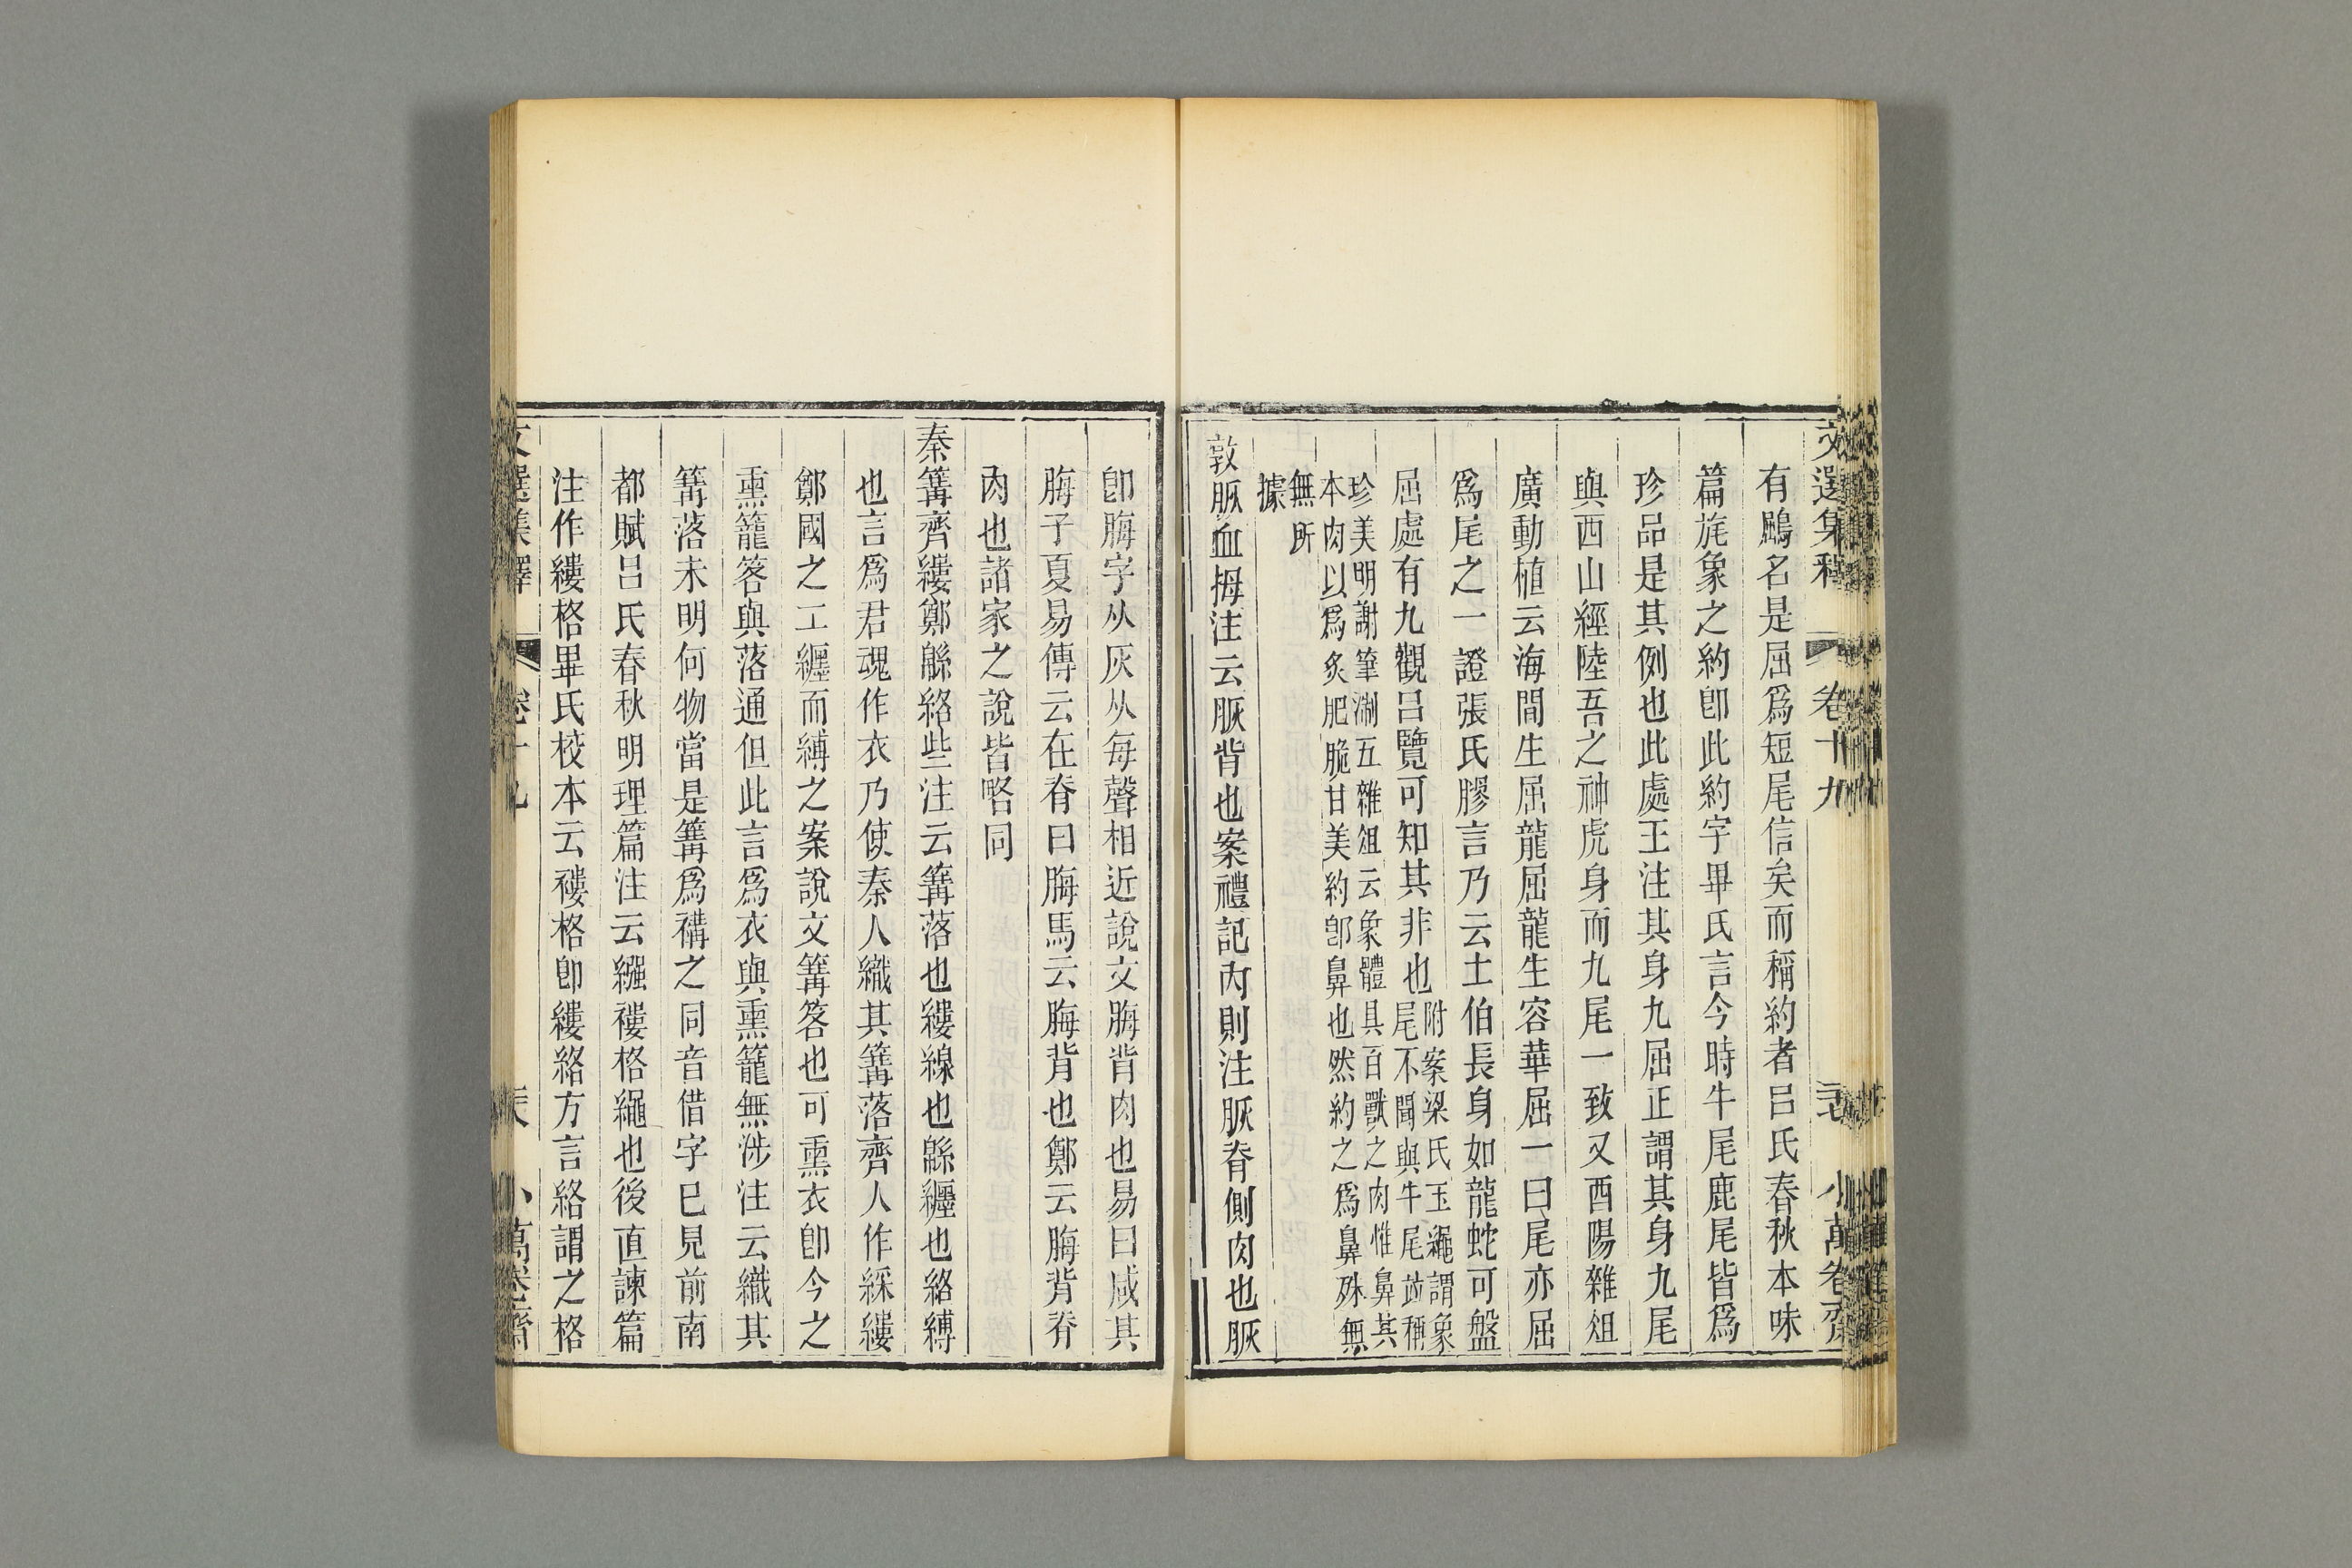 文選集釋 卷十九 小萬卷齋
有鷗名是屈爲短尾信矣而稱約者呂氏春秋本味
篇旄象之約卽此約字畢氏言今時牛尾鹿尾皆爲
珍品是其例也此處王注其身九屈正謂其身九尾
與西山經陸吾之神虎身而九尾一致又酉陽雜俎
廣動植云海間生屈龍屈龍生容華屈一曰尾亦屈
爲尾之一證張氏膠言乃云土伯長身如龍蛇可盤
屈處有九觀呂覽可知其非也附案梁氏玉繩謂象
尾不聞與牛尾竝稱
珍美明謝肇淛五雜俎云象體具百獸之肉惟鼻其
本肉以爲炙肥脆甘美約卽鼻也然約之爲鼻殊無
無所
據
敦脄血拇注云脄背也案禮記內則注脄脊側肉也脄
卽脢字从灰从每聲相近說文脢背肉也易曰咸其
脢子夏易傳云在脊曰脢馬云脢背也鄭云脢背脊
肉也諸家之說皆略同
秦篝齊縷鄭緜絡些注云篝落也縷線也緜纒也絡縛
也言爲君魂作衣乃使秦人織其篝落齊人作綵縷
鄭國之工纒而縛之案說文篝笿也可熏衣卽今之
熏籠笿與落通但此言爲衣與熏籠無涉注云織其
篝落未明何物當是篝爲褠之同音借字已見前南
都賦呂氏春秋明理篇注云繦褸格繩也後直諫篇
注作縷格畢氏校本云褸格卽縷絡方言絡謂之格
文選集釋 卷十九 小萬卷齋